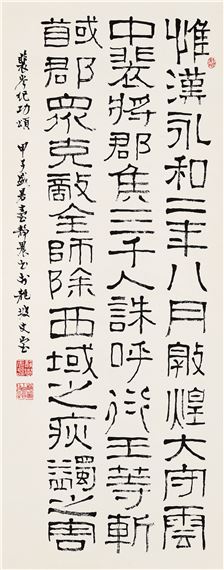 惟漢永和二年八月敦煌大守雲
中裴將郡兵三千人誅呼衍王等斬
馘部眾克敵全師除西域之疢蠲之害
裴岑紀功頌 甲子盛暑臺靜農書於龍坡丈室